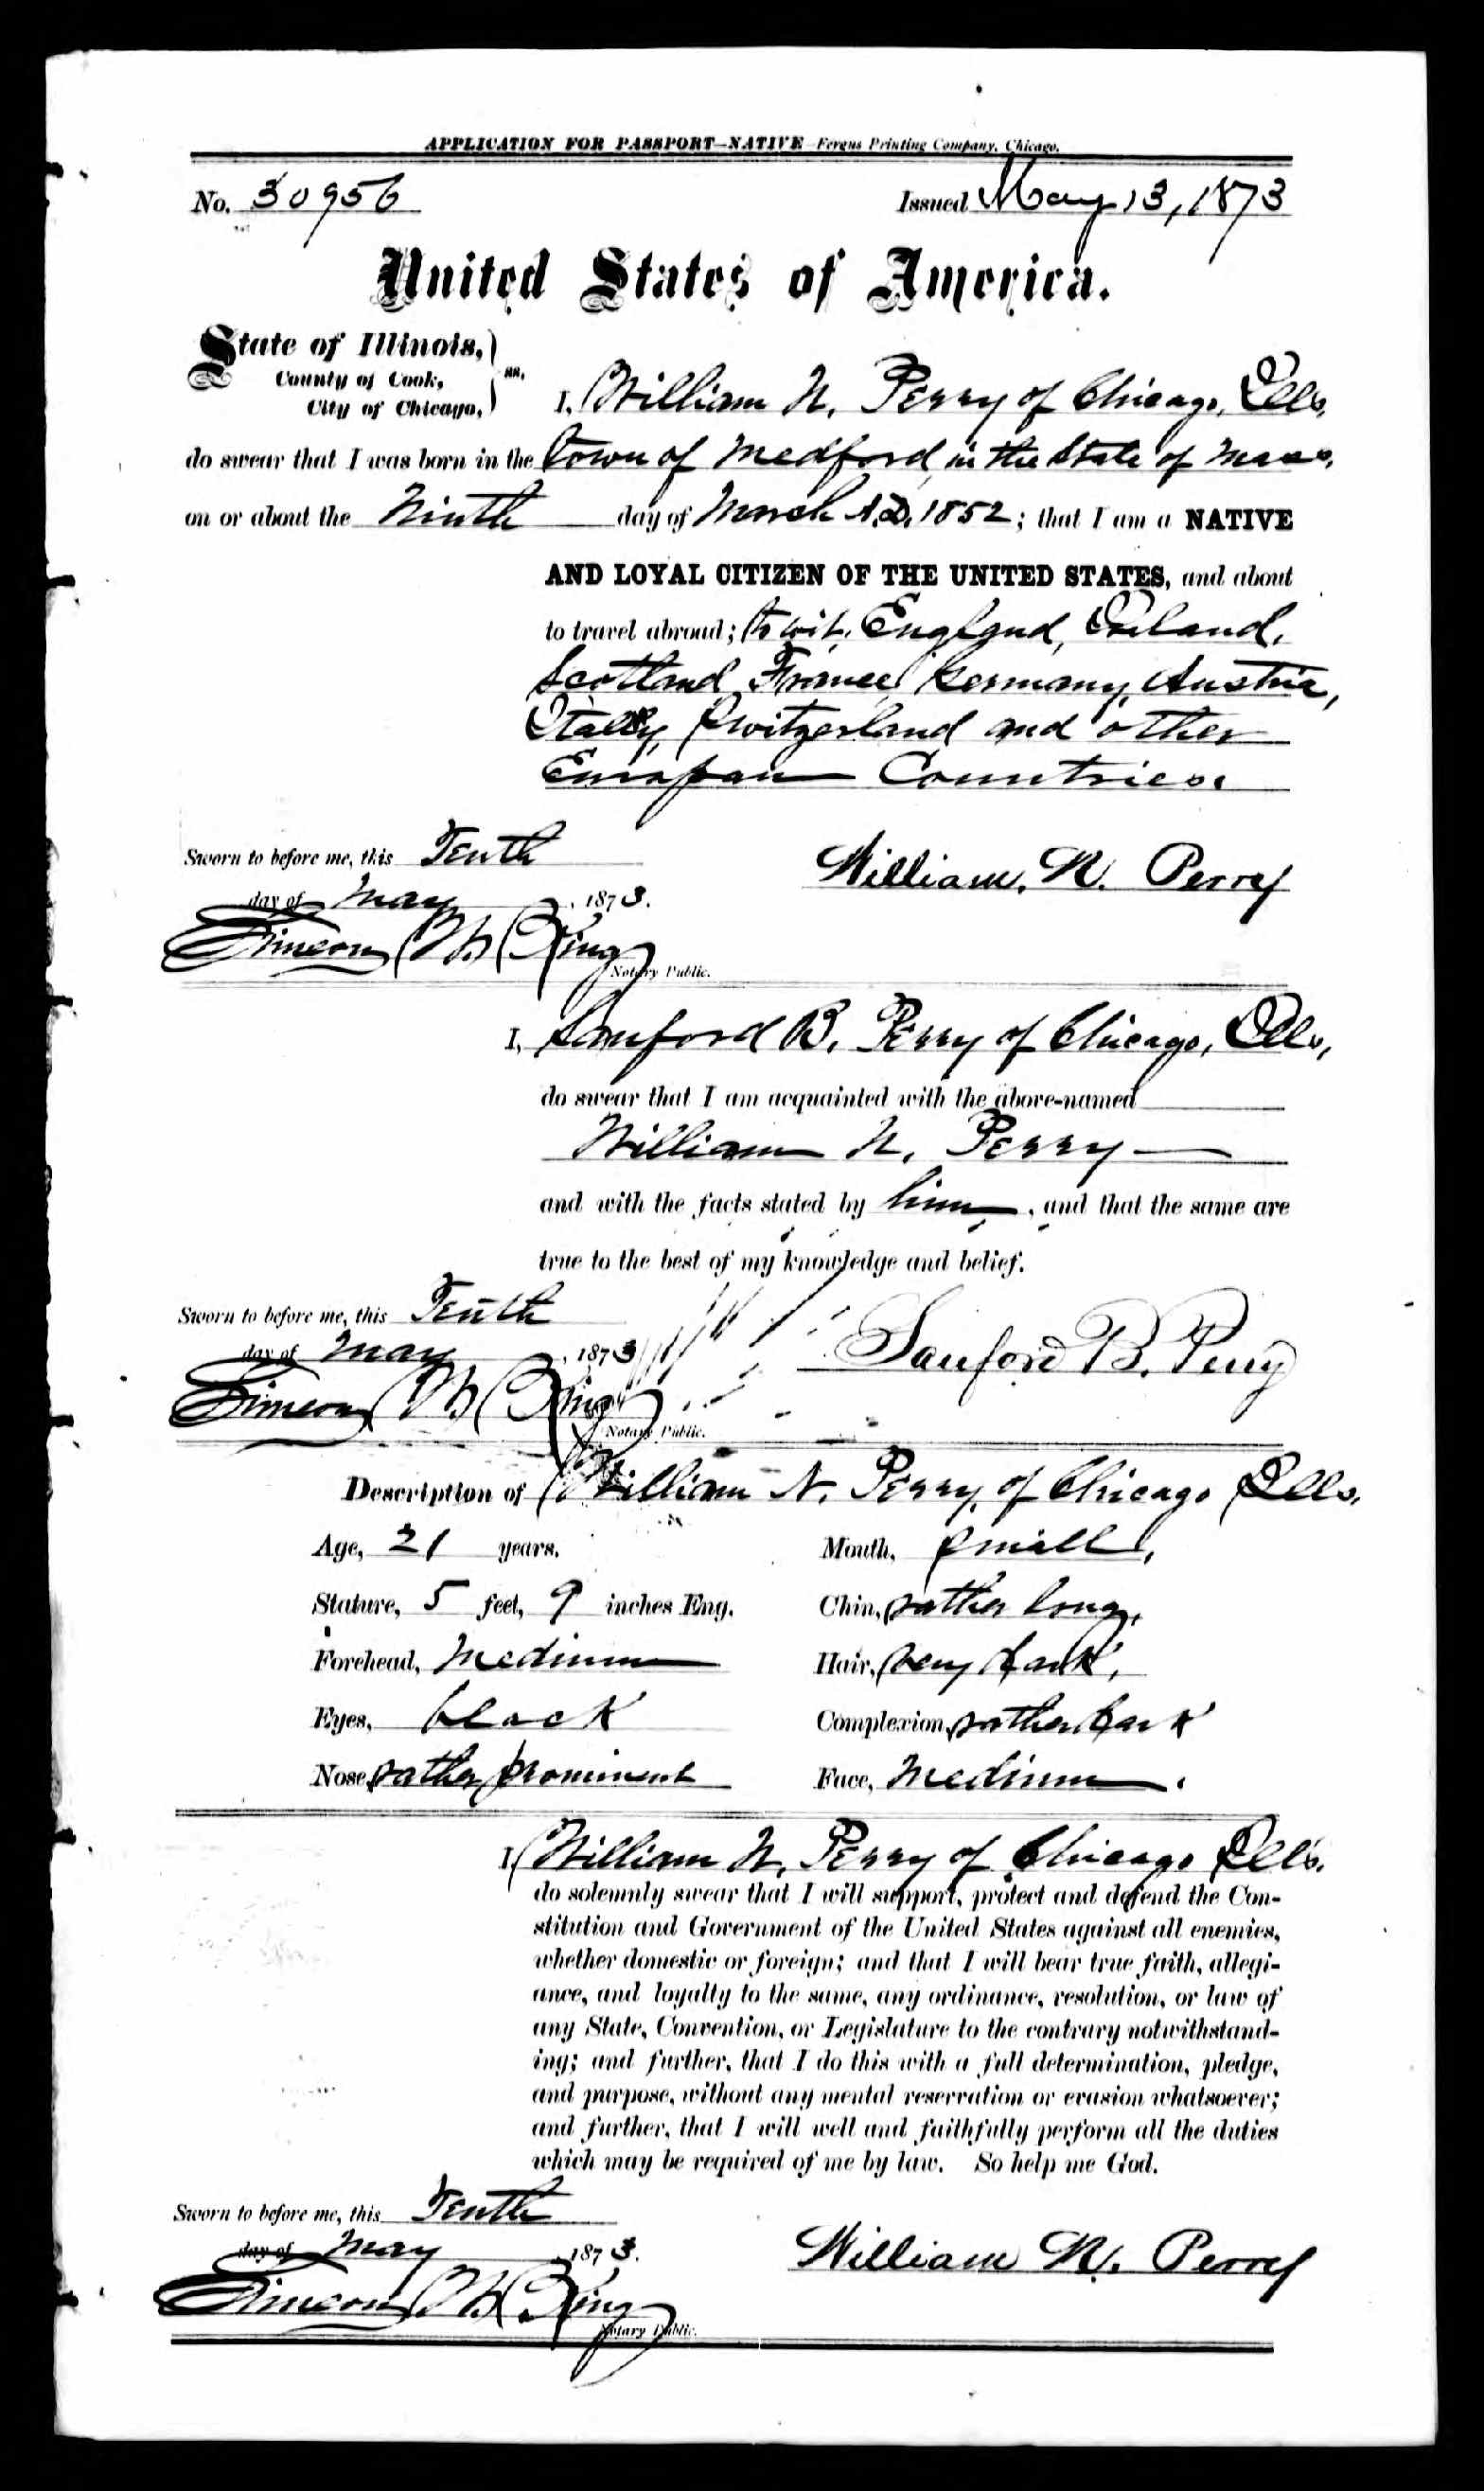 APPLICATION FOR PASSPORT—NATIVE—Fergus Printing Company, Chicago.
No. 30956 Issued May 13, 1873
United States of America.
State of Illinois,
County of Cook, ss.
City of Chicago, I, William N. Perry of Chicago, Ills,
do swear that I was born in the town of Medford, in the State of Mass,
on or about the Ninth day of March A.D. 1852; that I am a NATIVE
AND LOYAL CITIZEN OF THE UNITED STATES, and about
to travel abroad; to wit, England, Ireland,
Scotland, France, Germany, Austria,
Italy, Switzerland and other
Europan Countries.
Sworn to before me, this Tenth
day of May, 1873. William. N. Perry
Simeon W King
Notary Public.
I, Sanford B. Perry of Chicago, Ills,
do swear that I am acquainted with the above-named
William N. Perry
and with the facts stated by him, and that the same are
true to the best of my knowledge and belief.
Sworn to before me, this Tenth
day of May, 1873 Sanford B. Perry
Simeon W King
Notary Public.
Description of William N. Perry, of Chicago Ills.
Age, 21 years. Mouth, small,
Stature, 5 feet, 9 inches Eng. Chin, rather long,
Forehead, Medium Hair, very dark,
Eyes, black Complexion, rather dark
Nose, rather prominent Face, Medium.
I, William N. Perry of Chicago Ills.
do solemnly swear that I will support, protect and defend the Con-
stitution and Government of the United States against all enemies,
whether domestic or foreign; and that I will bear true faith, allegi-
ance, and loyalty to the same, any ordinance, resolution, or law of
any State, Convention, or Legislature to the contrary notwithstand-
ing; and further, that I do this with a full determination, pledge,
and purpose, without any mental reservation or evasion whatsoever;
and further, that I will well and faithfully perform all the duties
which may be required of me by law. So help me God.
Sworn to before me, this Tenth
day of May, 1873. William N. Perry
Simeon W King
Notary Public.